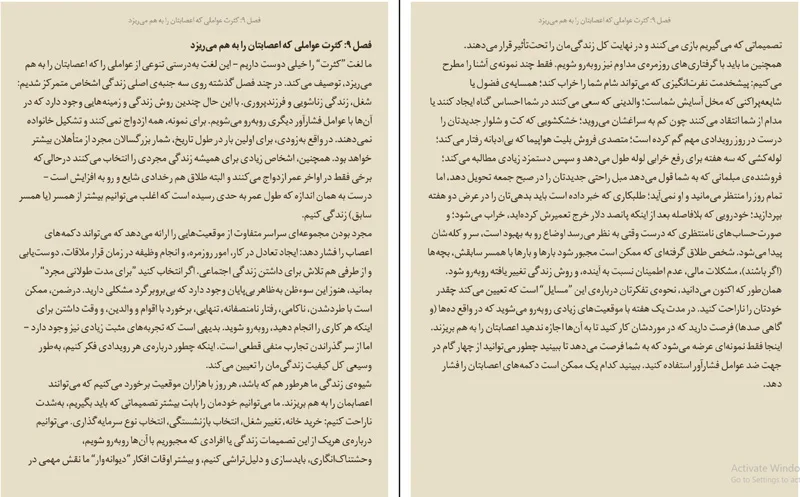 فصل ۹: کثرت عواملی که اعصابتان را به هم می‌ریزد
فصل ۹: کثرت عواملی که اعصابتان را به هم می‌ریزد
ما لغت "کثرت" را خیلی دوست داریم – این لغت به‌درستی تنوعی از عواملی را که اعصابتان را به هم
می‌ریزد، توصیف می‌کند. در چند فصل گذشته روی سه جنبه‌ی اصلی زندگی اشخاص متمرکز شدیم:
شغل، زندگی زناشویی و فرزندپروری. با این حال چندین روش زندگی و زمینه‌هایی وجود دارد که در
آن‌ها با عوامل فشارآور دیگری روبه‌رو می‌شویم. برای نمونه، همه ازدواج نمی‌کنند و تشکیل خانواده
نمی‌دهند. در واقع به‌زودی، برای اولین بار در طول تاریخ، شمار بزرگسالان مجرد از متأهلان بیشتر
خواهد بود. همچنین، اشخاص زیادی برای همیشه زندگی مجردی را انتخاب می‌کنند درحالی‌که
برخی فقط در اواخر عمر ازدواج می‌کنند و البته طلاق هم رخدادی شایع و رو به افزایش است –
درست به همان اندازه که طول عمر به حدی رسیده است که اغلب می‌توانیم بیشتر از همسر (یا همسر
سابق) زندگی کنیم.
مجرد بودن مجموعه‌ای سراسر متفاوت از موقعیت‌هایی را ارائه می‌دهد که می‌تواند دکمه‌های
اعصاب را فشار دهد: ایجاد تعادل در کار، امور روزمره، و انجام وظیفه در زمان قرار ملاقات، دوست‌یابی
و از طرفی هم تلاش برای داشتن زندگی اجتماعی. اگر انتخاب کنید "برای مدت طولانی مجرد"
بمانید، هنوز این سوءظن به‌ظاهر بی‌پایان وجود دارد که بی‌بروبرگرد مشکلی دارید. درضمن، ممکن
است با طردشدن، ناکامی، رفتار نامنصفانه، تنهایی، برخورد با اقوام و والدین، و وقت داشتن برای
اینکه هر کاری را انجام دهید، روبه‌رو شوید. بدیهی است که تجربه‌های مثبت زیادی نیز وجود دارد –
اما از سر گذراندن تجارب منفی قطعی است. اینکه چطور درباره‌ی هر رویدادی فکر کنیم، به‌طور
وسیعی کل کیفیت زندگی‌مان را تعیین می‌کند.
شیوه‌ی زندگی ما هرطور هم که باشد، هر روز با هزاران موقعیت برخورد می‌کنیم که می‌توانند
اعصابمان را به هم بریزند. ما می‌توانیم خودمان را بابت بیشتر تصمیماتی که باید بگیریم، به‌شدت
ناراحت کنیم: خرید خانه، تغییر شغل، انتخاب بازنشستگی، انتخاب نوع سرمایه‌گذاری. می‌توانیم
درباره‌ی هریک از این تصمیمات زندگی یا افرادی که مجبوریم با آن‌ها روبه‌رو شویم،
وحشتناک‌انگاری، بایدسازی و دلیل‌تراشی کنیم، و بیشتر اوقات افکار "دیوانه‌وار" ما نقش مهمی در
فصل ۹: کثرت عواملی که اعصابتان را به هم می‌ریزد
تصمیماتی که می‌گیریم بازی می‌کنند و در نهایت کل زندگی‌مان را تحت‌تأثیر قرار می‌دهند.
همچنین ما باید با گرفتاری‌های روزمره‌ی مداوم نیز روبه‌رو شویم. فقط چند نمونه‌ی آشنا را مطرح
می‌کنیم: پیشخدمت نفرت‌انگیزی که می‌تواند شام شما را خراب کند؛ همسایه‌ی فضول یا
شایعه‌پراکنی که مخل آسایش شماست؛ والدینی که سعی می‌کنند در شما احساس گناه ایجاد کنند یا
مدام از شما انتقاد می‌کنند چون کم به سراغشان می‌روید؛ خشکشویی که کت و شلوار جدیدتان را
درست در روز رویدادی مهم گم کرده است؛ متصدی فروش بلیت هواپیما که بی‌ادبانه رفتار می‌کند؛
لوله‌کشی که سه هفته برای رفع خرابی لوله طول می‌دهد و سپس دستمزد زیادی مطالبه می‌کند؛
فروشنده‌ی مبلمانی که به شما قول می‌دهد مبل راحتی جدیدتان را در صبح جمعه تحویل دهد، اما
تمام روز را منتظر می‌مانید و او نمی‌آید؛ طلبکاری که خبر داده است باید بدهی‌تان را در عرض دو هفته
بپردازید؛ خودرویی که بلافاصله بعد از اینکه پانصد دلار خرج تعمیرش کرده‌اید، خراب می‌شود؛ و
صورت‌حساب‌های نامنتظری که درست وقتی به نظر می‌رسد اوضاع رو به بهبود است، سر و کله‌شان
پیدا می‌شود. شخص طلاق گرفته‌ای که ممکن است مجبور شود بارها و بارها با همسر سابقش، بچه‌ها
(اگر باشند)، مشکلات مالی، عدم اطمینان نسبت به آینده، و روش زندگی تغییر یافته روبه‌رو شود.
همان‌طور که اکنون می‌دانید، نحوه‌ی تفکرتان درباره‌ی این "مسایل" است که تعیین می‌کند چقدر
خودتان را ناراحت کنید. در مدت یک هفته با موقعیت‌های زیادی روبه‌رو می‌شوید که در واقع ده‌ها (و
گاهی صدها) فرصت دارید که در موردشان کار کنید تا به آن‌ها اجازه ندهید اعصابتان را به هم بریزند.
اینجا فقط نمونه‌ای عرضه می‌شود که به شما فرصت می‌دهد تا ببینید چطور می‌توانید از چهار گام در
جهت ضد عوامل فشارآور استفاده کنید. ببینید کدام یک ممکن است دکمه‌های اعصابتان را فشار
دهد.
Activate Windo
Go to Settings to act